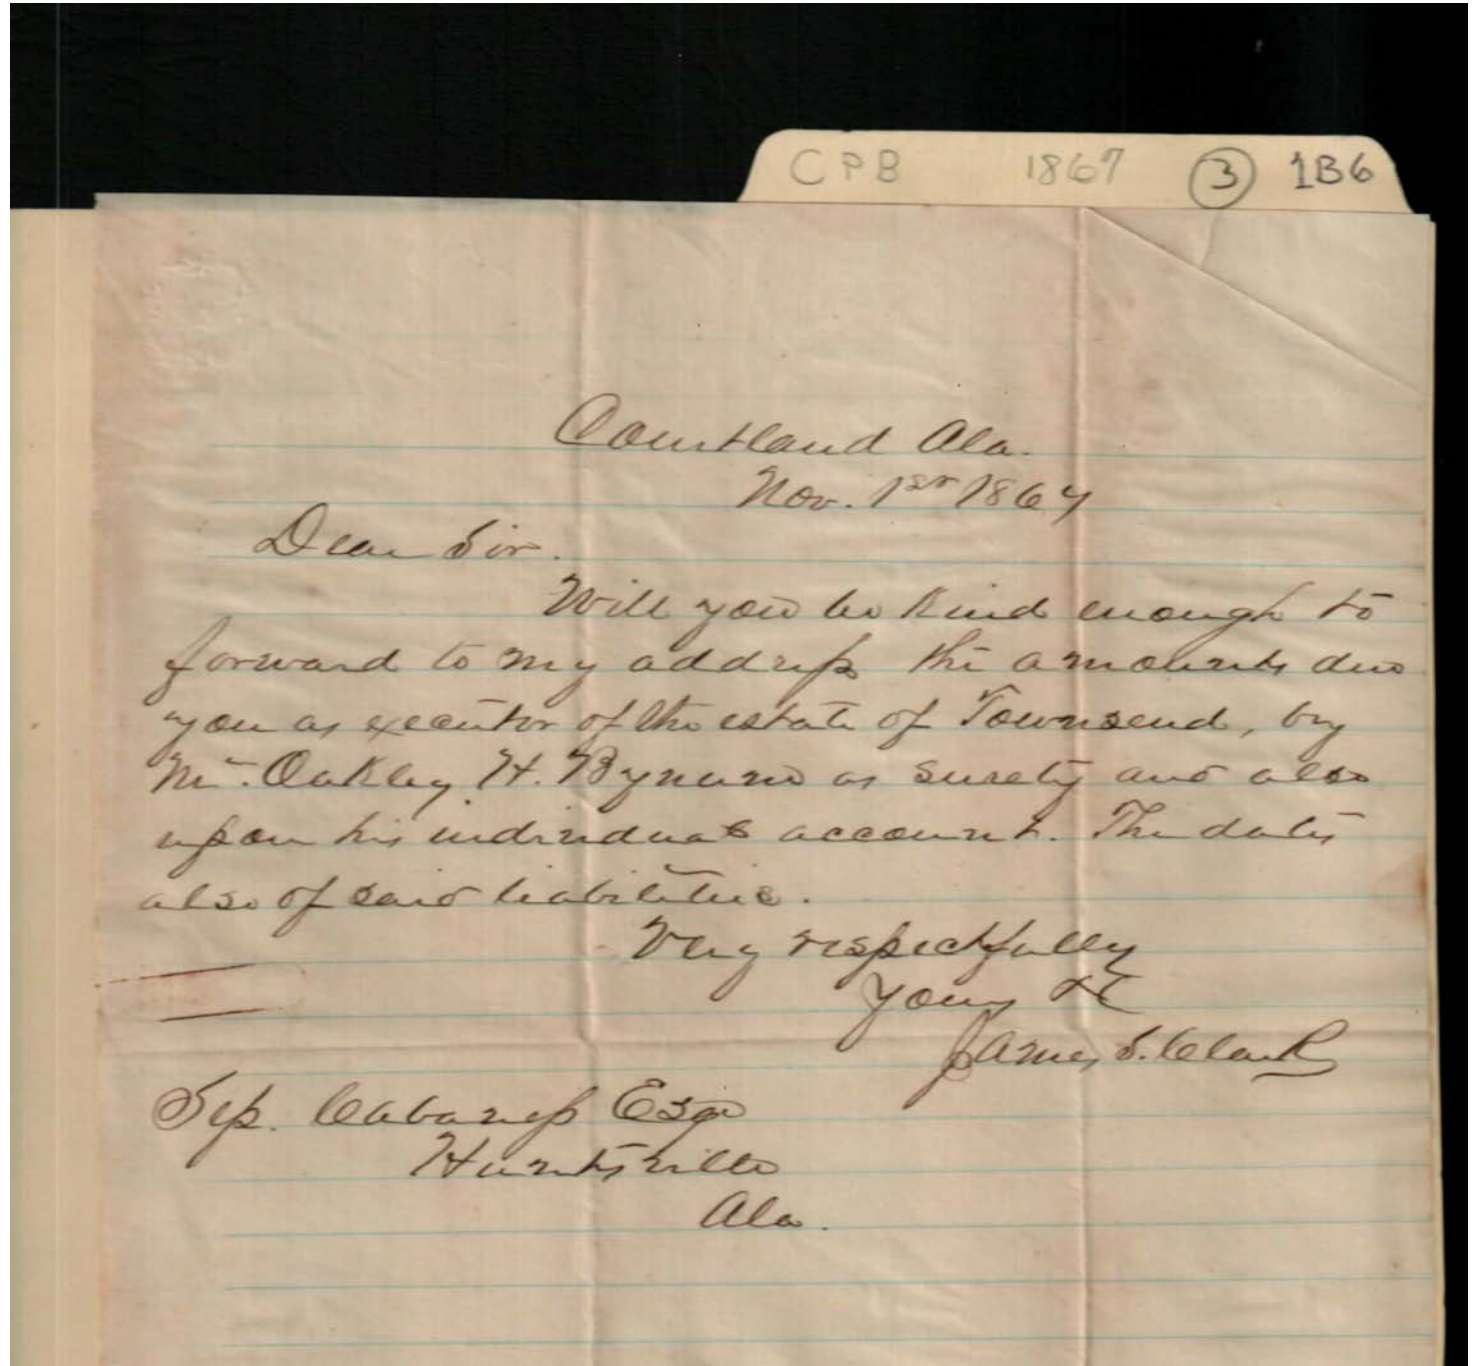 CPB 1867 3 1B6
Courtland Ala.
Nov. 1st 1867
Dear Sir.
Will you be kind enough to
forward to my address the amounts due
you as executor of the estate of Townsend, by
Mr. Oakley H. Bynum as surety and also
upon his individual account. The dates
also of said liabilities.
Very respectfully
Yours &c
James S. Clark
Sep. Cabaness Esqr
Huntsville
Ala.